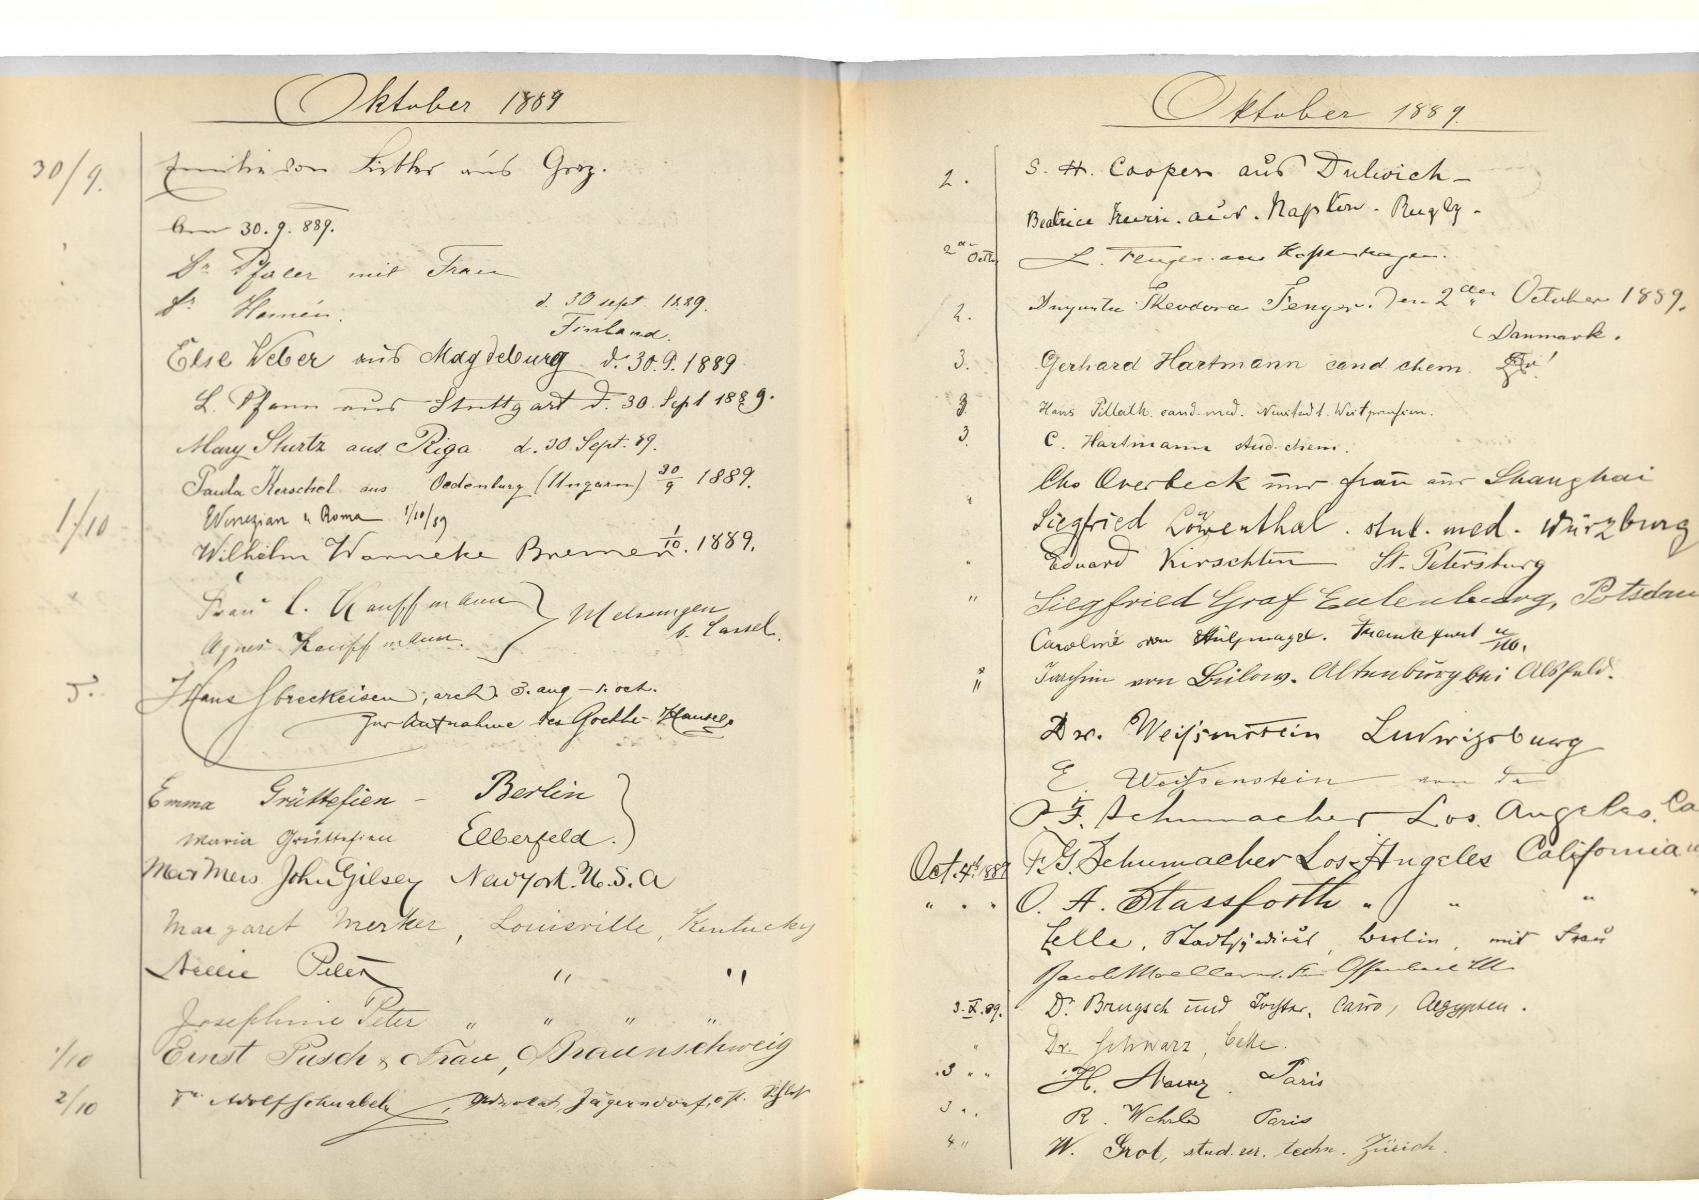 Oktober 1889
30/9. von aus Graz.
30. 9. 889.
Dr. mit Frau
Dr. Homén. d. 30 sept. 1889.
Finland.
Else Weber aus Magdeburg d. 30.9.1889
L. Pfann aus Stuttgart d. 30. Sept 1889.
Mary Sturtz aus Riga d. 30 Sept. 89.
Paula Kerschel aus Oedenburg (Ungarn) 30/9 1889.
1/10 Venezian Roma 1/10/89
Wilhelm Warneke Bremen 1/10. 1889.
Frau C. Kauffmann
Agnes Kauffmann. } Melsungen b. Cassel.
Hans Streckeisen, arch. 3. aug – oct.
zur Aufnahme des Goethe-Hauses.
Emma Grüttefien – Berlin
Maria Grüttefien Elberfeld.
Mr & Mrs. John Gilsey New York. U.S.A
Margaret Merker, Louisville, Kentucky
Nellie Peter " "
Josephine Peter " " " "
1/10 Ernst Pusch & Frau, Braunschweig
2/10 Dr. Adolf Schnabel, Advocat, Jägerndorf, öst.
Oktober 1889.
2. S. H. Cooper aus Dulwich –
Beatrice aus. Napton. Rugby.
2 L. Fenger aus Kopenhagen.
2. Augusta Theodora Fenger. Den 2den October 1889.
Danmark.
3. Gerhard Hartmann cand chem.
3. Hans cand. med. Neustadt. Westpreußen.
3. C. Hartmann stud. chem.
Chs Overbeck und Frau aus Shanghai
Siegfried Löwenthal. stud. med. Würzburg
Eduard Kirschten St. Petersburg
" Siegfried Graf Eulenburg, Potsdam
Caroline von Frankfurt
von Bülow. Altenburg bei Alsfeld.
Dr. Weissenstein Ludwigsburg
E. Weissenstein von da
F. Schumacher Los Angeles. Ca
Oct. 4th 1889 F. G. Schumacher Los Angeles California "
" " " O. A. Stassforth " " " "
Zelle, Berlin, mit Frau
Jacob Offenbach
3. X. 89. Dr. Brugsch und Tochter, Cairo, Aegypten.
" Dr. Schwarz, Celle.
3 " " H. Paris
3 " R. Wehrle Paris
4 " W. Grot, stud. rer. techn. Zürich.